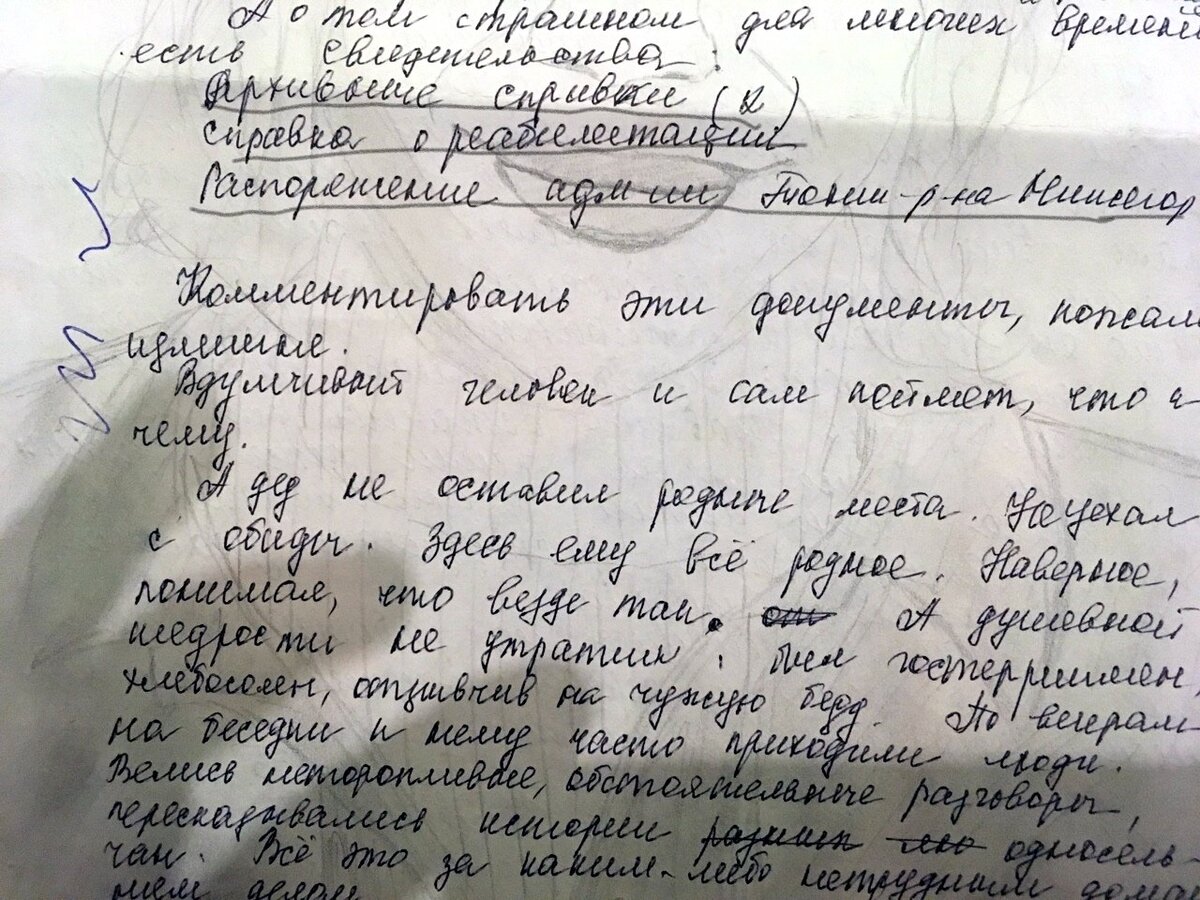 А о том страшном для многих времени
есть свидетельства:
Архивные справки (2)
Справка о реабилитации
Распоряжение адм-ии Тонкин-р-на Нижегор
Комментировать эти документы, пожал
излишне.
Вдумчивый человек и сам поймет, что к
чему.
А дед не оставил родные места. Не уехал
с обиды. Здесь ему всё родное. Наверное,
понимал, что везде так. А душевной
щедрости не утратил: был гостеприимен
хлебосолен, отзывчив на чужую беду. По вечерам
на беседки к нему часто приходили люди.
Велись неторопливые, обстоятельные разговоры,
пересказывались истории разных односель-
чан. Всё это за каким-либо нетрудным дома
ним делом